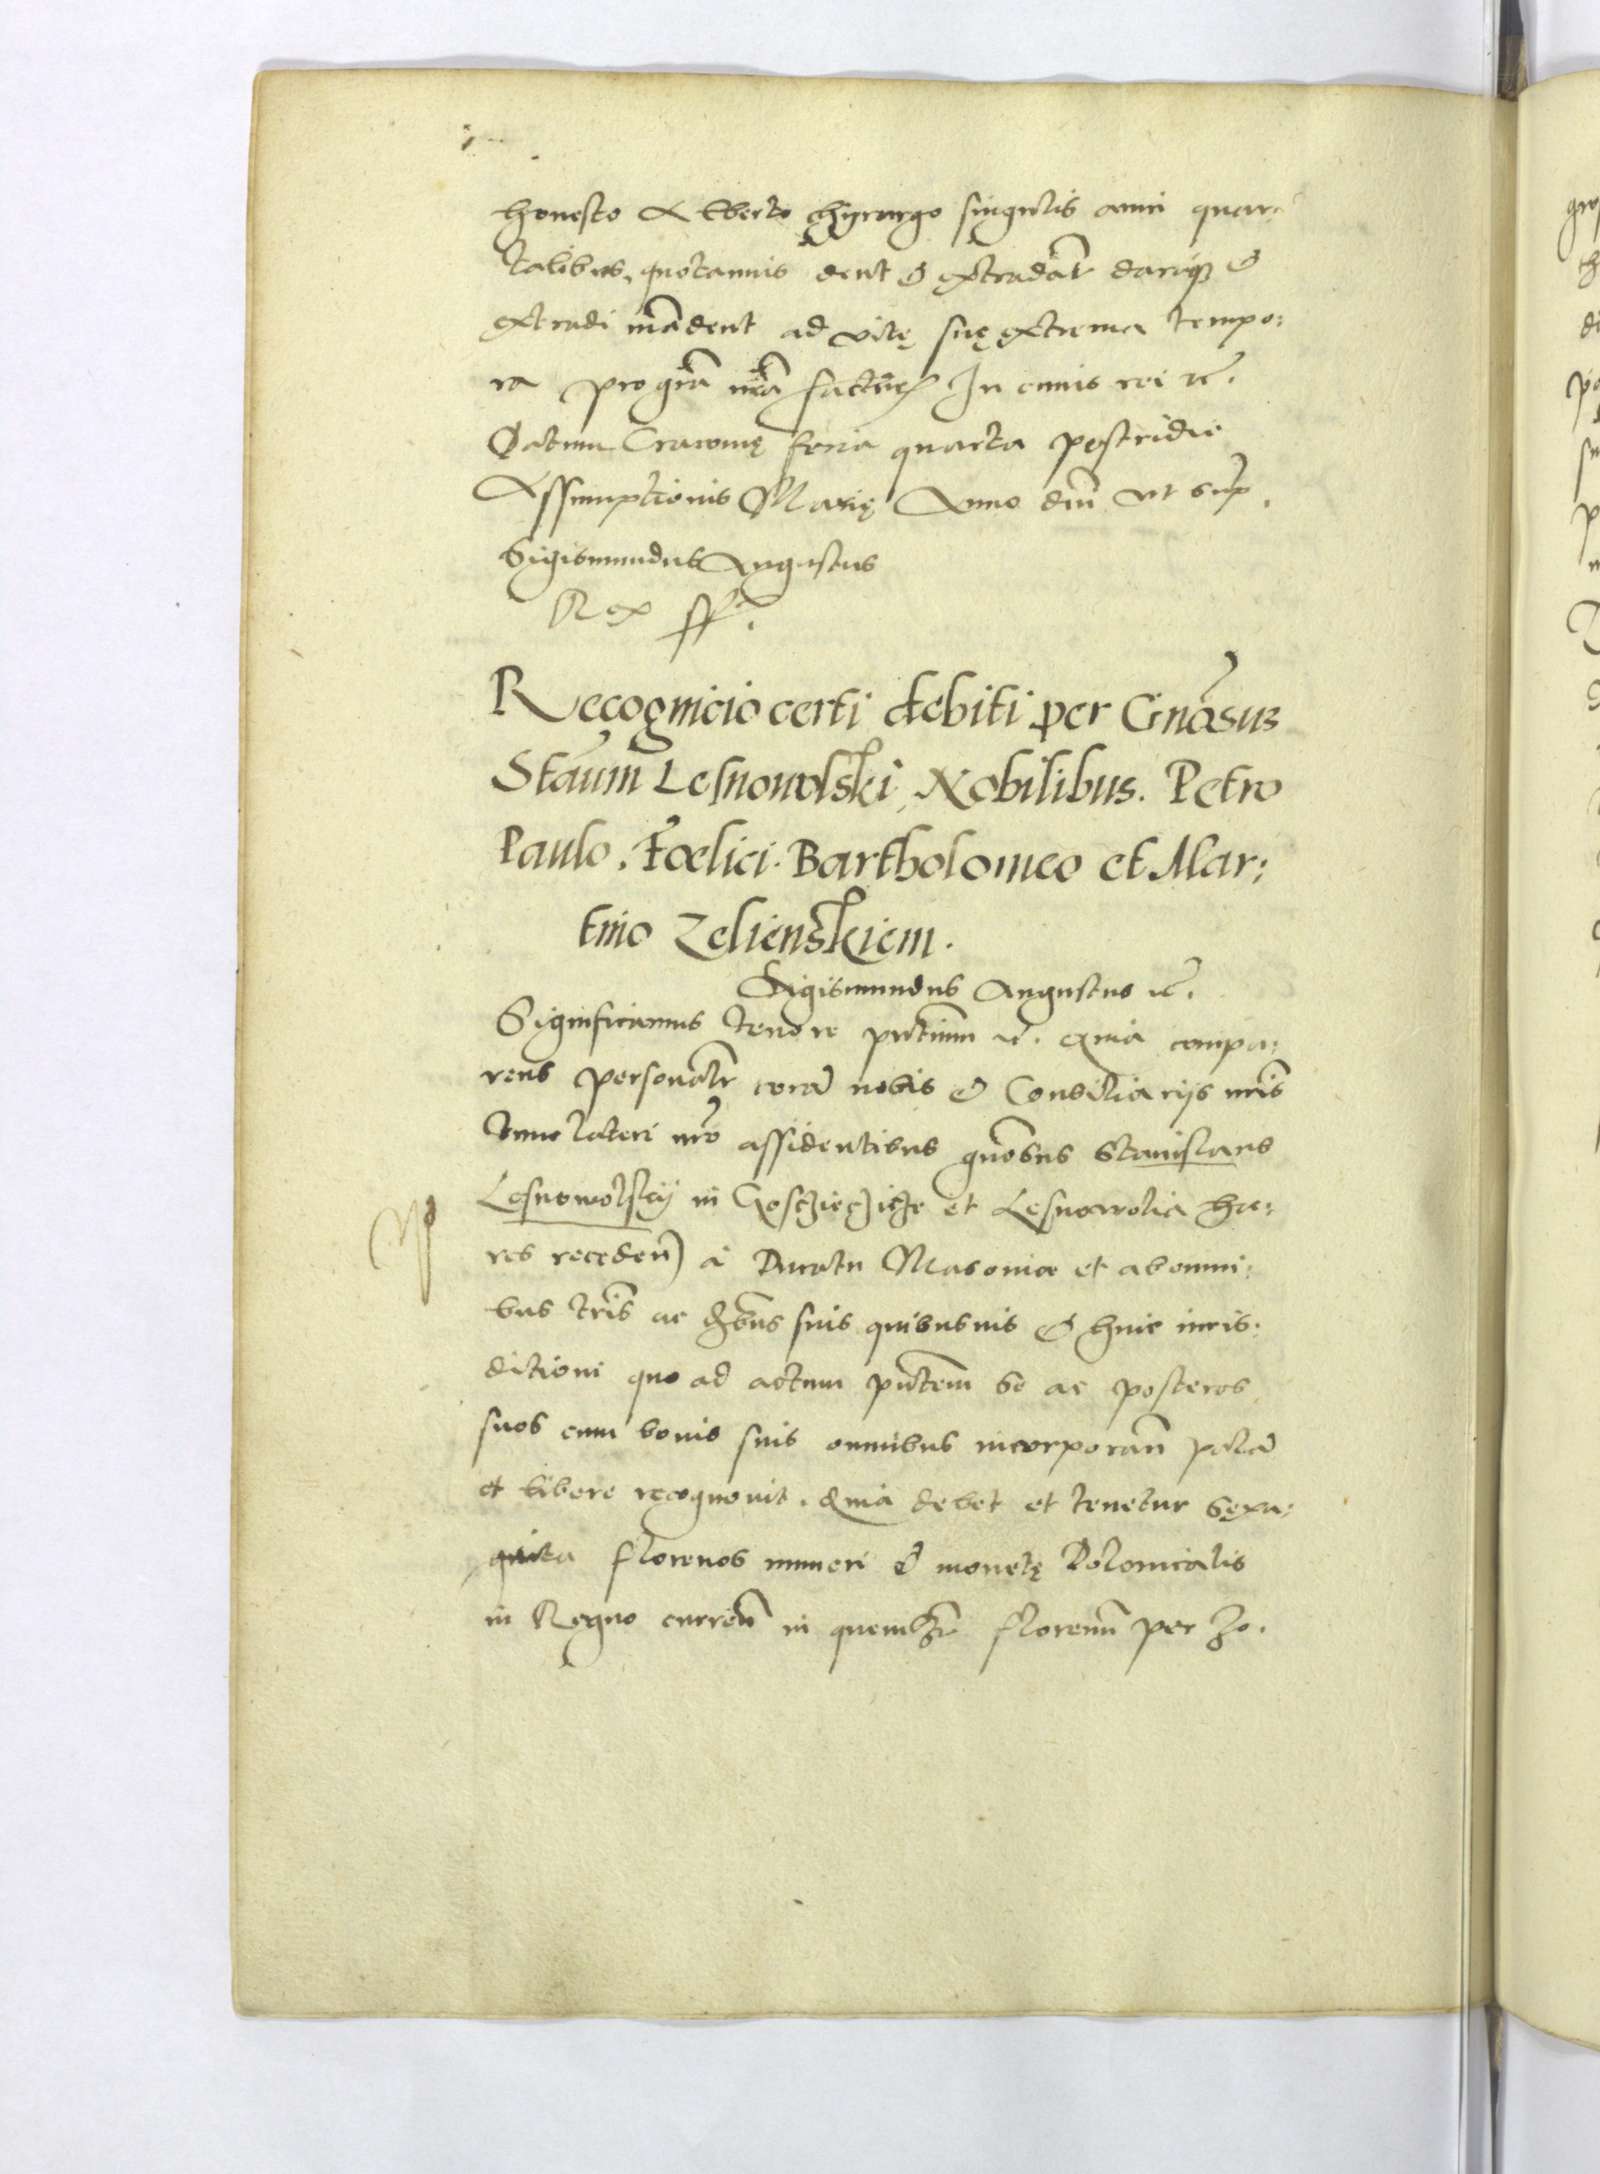 honesto Alberto chyrurgo singulis anni quar-
talibus, quotannis dent & extradāt dariq₃ &
extradi mādent ad vitę suę extrema tempo:
ra pro grā nrā facturi In cuius rei &c̄.
Datum Cracovię feria quarta postridie
Assumptionis Marię Anno dnī ut supr.
Sigismundus Augustus
Rex sst.
Recognicio certi debiti per Gnōsus
Staūm Lesnowolski Nobilibus. Petro
Paulo. Foelici. Bartholomeo et Mar:
tino Zelienskiem.
Sigismundus Augustus &c̄.
Significamus tenore pn̄tium &c̄. Quia compa:
rens personalr̄ corā nobis & Consiliarijs nr̄is
tunc lateri nr̄o assidentibus gn̄osus Stanislaus
Lesnowolskij in et Lesnowolia hæ:
res receden̄ à Ducatu Masoviæ et ab omni:
bus tr̄is ac suis quibusvis & huic iuris:
ditioni quo ad actum pn̄tem se ac posteros
suos cum bonis suis omnibus incorporan̄ palā
et libere recognovit. Quia debet et tenetur sexa:
ginta florenos numeri & monetę Polonicalis
in Regno curren̄ in quemlr̄ florenū per 30.